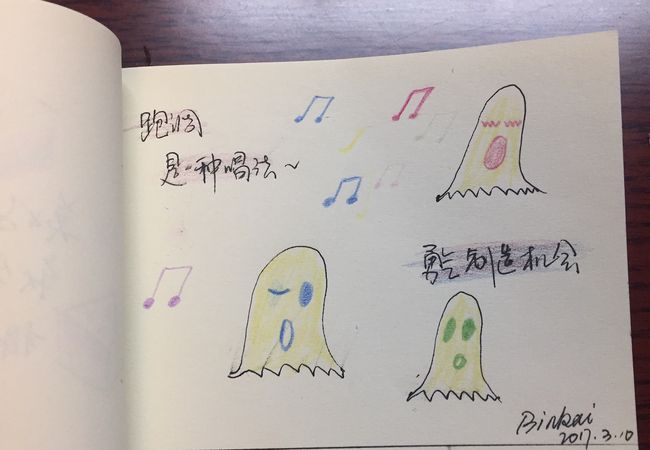 跑调
是一种唱法~
勇气制造机会
Binkai
2017.3.10